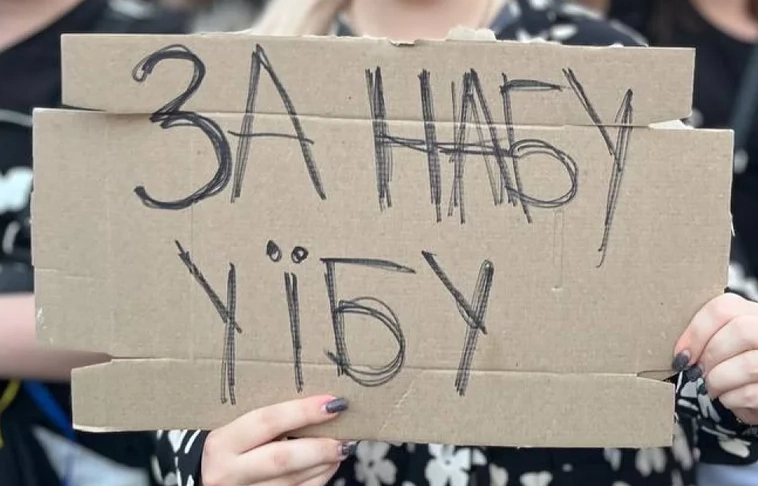 ЗА НАБУ
УЇБУ